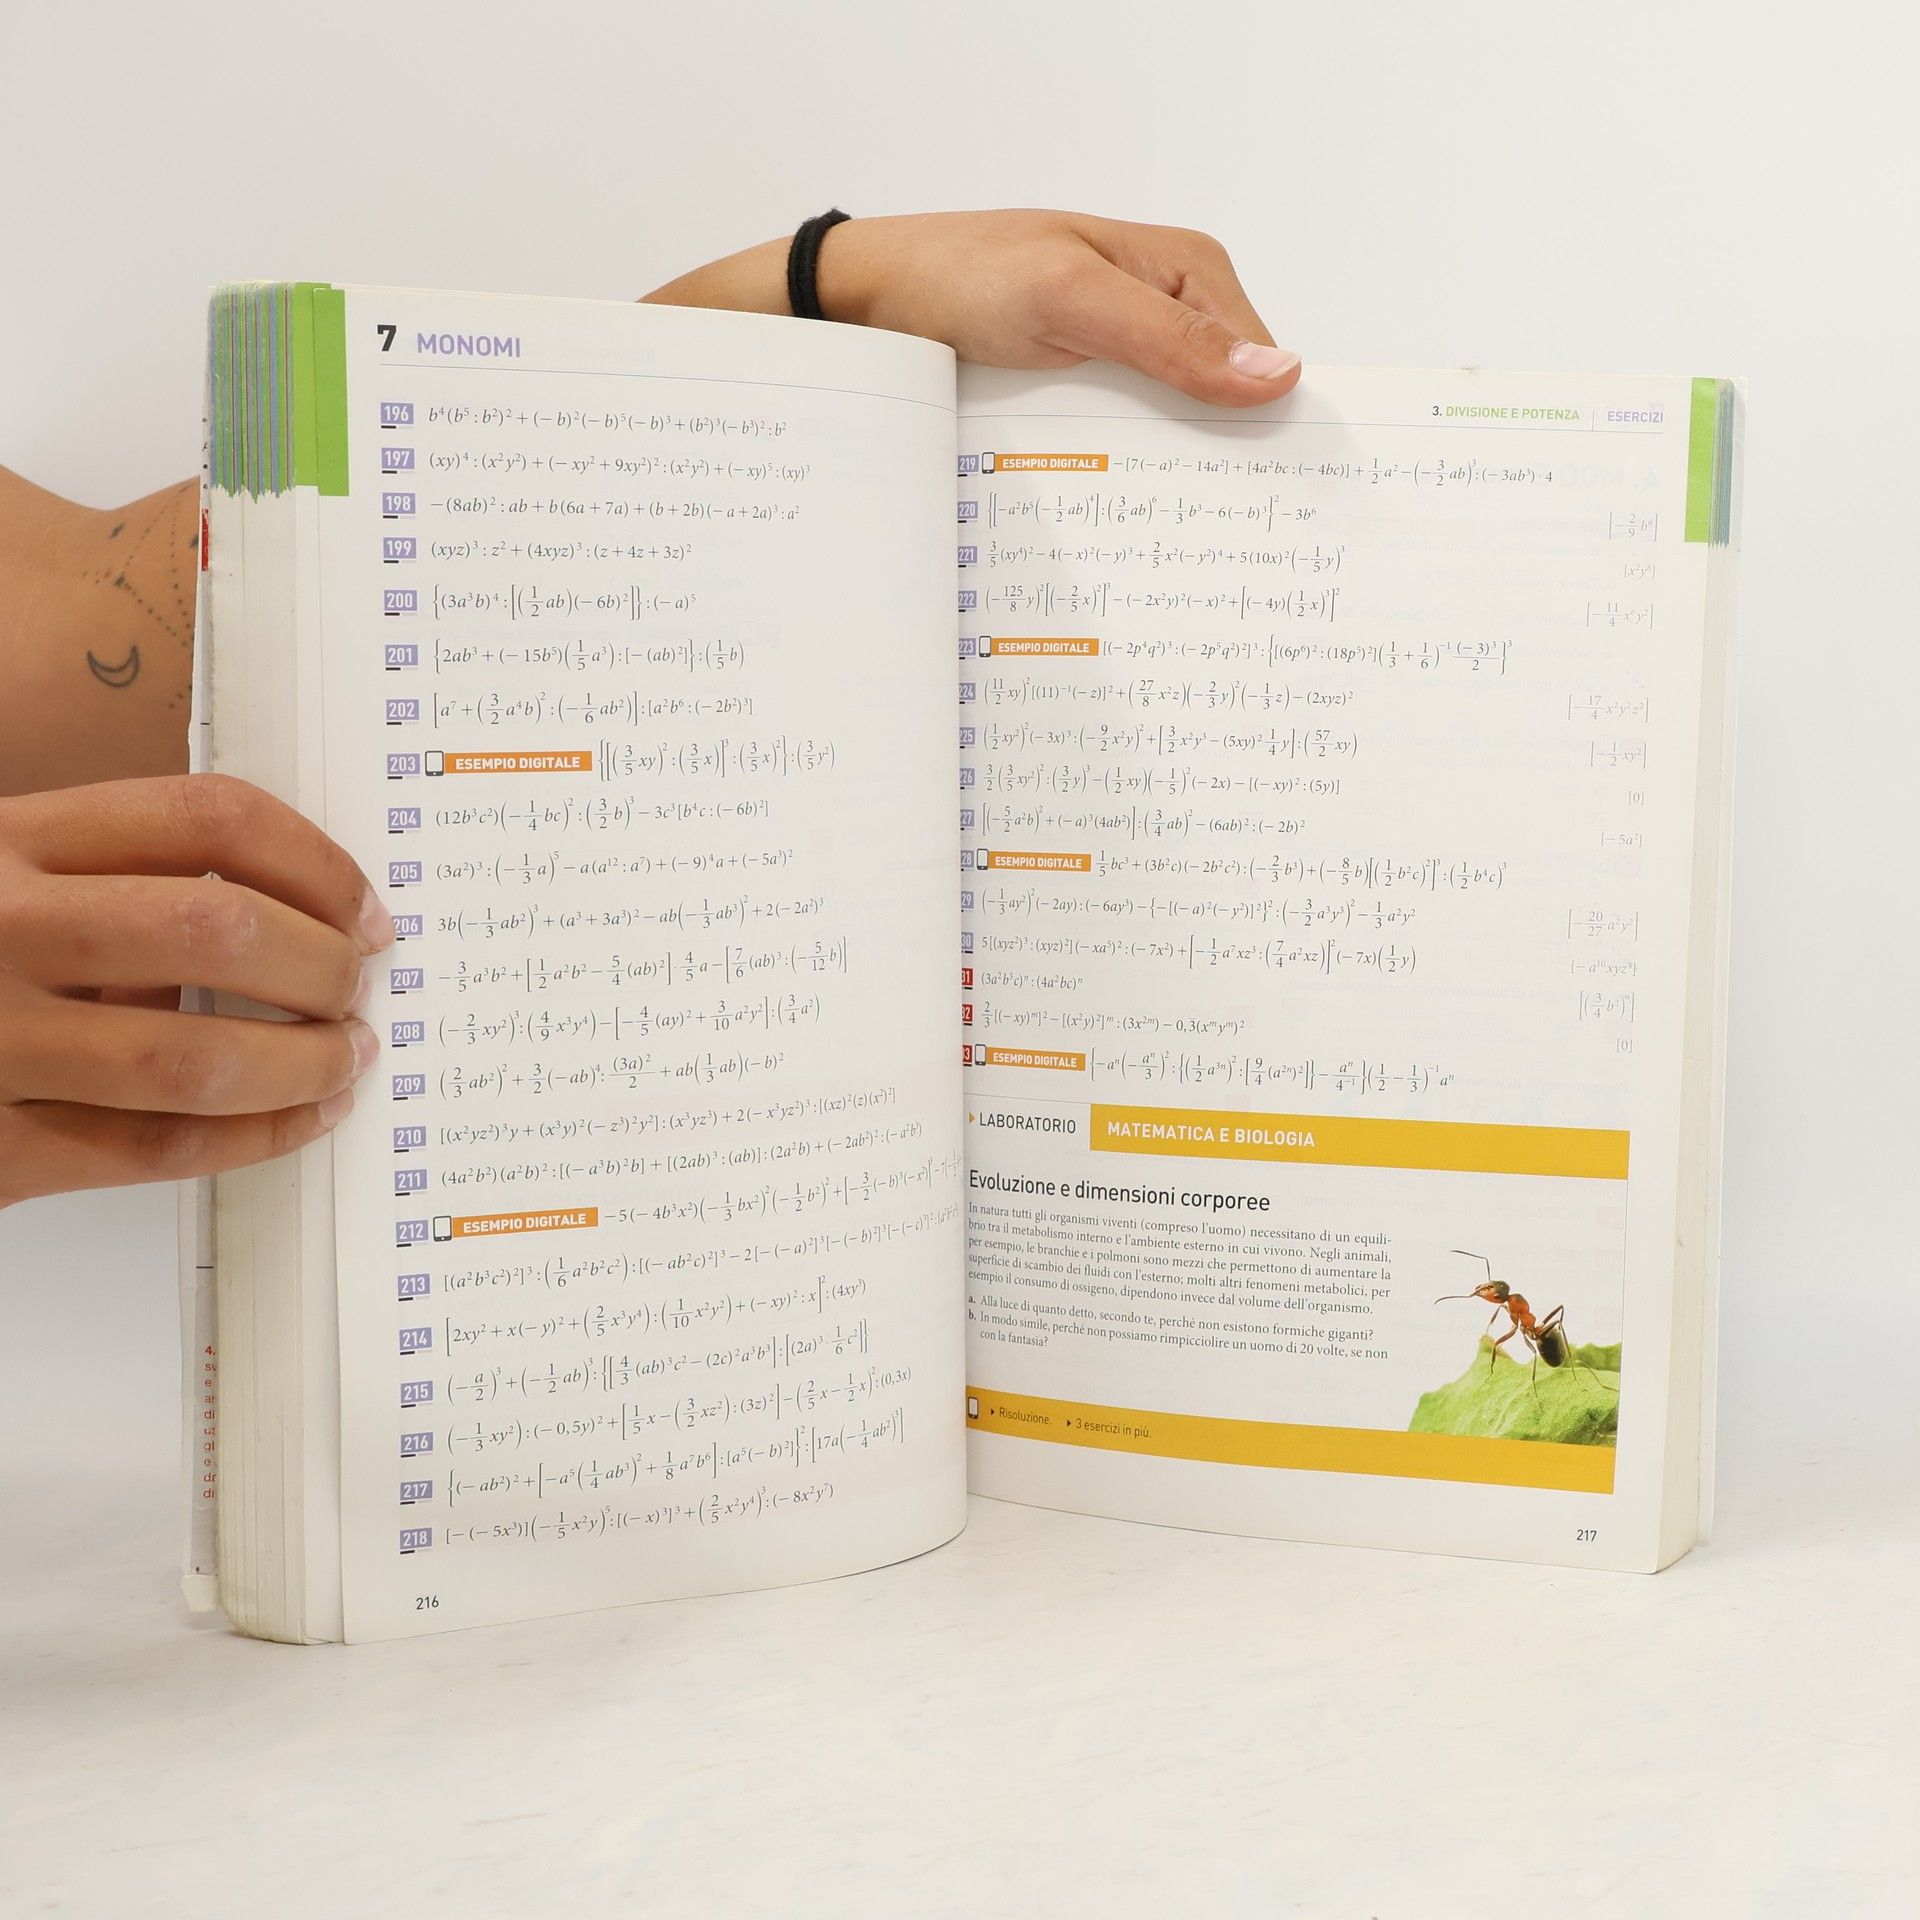 7 MONOMI
196 b⁴(b⁵ : b²)² + (− b)²(− b)⁵(− b)³ + (b²)³(− b³)² : b²
197 (xy)⁴ : (x²y²) + (− xy² + 9xy²)² : (x²y²) + (− xy)⁵ : (xy)³
198 −(8ab)² : ab + b(6a + 7a) + (b + 2b)(− a + 2a)³ : a²
199 (xyz)³ : z² + (4xyz)³ : (z + 4z + 3z)²
200 {(3a³b)⁴ : [(1/2 ab)(− 6b)²]} : (− a)⁵
201 {2ab³ + (− 15b⁵)(1/5 a³) : [− (ab)²]} : (1/5 b)
202 [a⁷ + (3/2 a⁴b)² : (−1/6 ab²)] : [a²b⁶ : (− 2b²)³]
203 ESEMPIO DIGITALE {[(3/5 xy)² : (3/5 x)]³ : (3/5 x)²} : (3/5 y²)
204 (12b³c²)(−1/4 bc)² : (3/2 b)³ − 3c³[b⁴c : (− 6b)²]
205 (3a²)³ : (−1/3 a)⁵ − a(a¹² : a⁷) + (− 9)⁴a + (− 5a³)²
206 3b(−1/3 ab²)³ + (a³ + 3a³)² − ab(−1/3 ab³)² + 2(− 2a²)³
207 −3/5 a³b² + [1/2 a²b² − 5/4 (ab)²] · 4/5 a − [7/6 (ab)³ : (−5/12 b)]
208 (−2/3 xy²)³ : (4/9 x³y⁴) − [−4/5 (ay)² + 3/10 a²y²] : (3/4 a²)
209 (2/3 ab²)² + 3/2 (−ab)⁴ : (3a)²/2 + ab(1/3 ab)(− b)²
210 [(x²yz²)³y + (x³y)²(− z³)²y²] : (x³yz³) + 2(− x³yz²)³ : [(xz)²(z)(x²)²]
211 (4a²b²)(a²b)² : [(− a³b)²b] + [(2ab)³ : (ab)] : (2a²b) + (− 2ab²)² : (− a²b³)
212 ESEMPIO DIGITALE −5(− 4b³x²)(−1/3 bx²)²(−1/2 b²)² + [−3/2 (−b)³(−x²)]³ − 7
213 [(a²b³c²)²]³ : (1/6 a²b²c²) : [(− ab²c)²]³ − 2[− (− a)²]³[− (− b)²]³[− (− c)³]² :
214 [2xy² + x(− y)² + (2/5 x³y⁴) : (1/10 x²y²) + (− xy)² : x]² : (4xy³)
215 (−a/2)³ + (−1/2 ab)³ : {[4/3 (ab)³c² − (2c)²a³b³] : [(2a)³ · 1/6 c²]}
216 (−1/3 xy²) : (− 0,5y)² + [1/5 x − (3/2 xz²) : (3z)²] − (2/5 x − 1/2 x)² : (0,3x)
217 {(− ab²)² + [−a⁵(1/4 ab³)² + 1/8 a⁷b⁶] : [a⁵(− b)²]}² : [17a(−1/4 ab²)³]
218 [− (− 5x³)](−1/5 x²y)⁵ : [(− x)³]³ + (2/5 x²y⁴)³ : (− 8x²y⁷)
216
3. DIVISIONE E POTENZA ESERCIZI
219 ESEMPIO DIGITALE −[7(− a)² − 14a²] + [4a²bc : (− 4bc)] + 1/2 a² − (−3/2 ab)³ : (− 3ab³) · 4
220 {[−a²b⁵(−1/2 ab)⁴] : (3/6 ab)⁶ − 1/3 b³ − 6(− b)³}² − 3b⁶ [−2/9 b⁶]
221 3/5 (xy⁴)² − 4(− x)²(− y)³ + 2/5 x²(− y²)⁴ + 5(10x)²(−1/5 y)³ [x²y⁸]
222 (−125/8 y)²[(−2/5 x)²]³ − (− 2x²y)²(− x)² + [(− 4y)(1/2 x)³]² [−11/4 x⁶y²]
223 ESEMPIO DIGITALE [(− 2p⁴q²)³ : (− 2p⁵q²)²]³ : {[(6p⁶)² : (18p⁵)²](1/3 + 1/6)⁻¹ (− 3)³/2}³
224 (11/2 xy)²[(11)⁻¹(− z)]² + (27/8 x²z)(−2/3 y)²(−1/3 z) − (2xyz)² [−17/4 x²y²z²]
225 (1/2 xy²)²(− 3x)³ : (−9/2 x²y)² + [3/2 x²y³ − (5xy)² 1/4 y] : (57/2 xy) [−1/2 xy²]
226 3/2 (3/5 xy²)² : (3/2 y)³ − (1/2 xy)(−1/5)²(− 2x) − [(− xy)² : (5y)] [0]
27 [(−5/2 a²b)² + (− a)³(4ab²)] : (3/4 ab)² − (6ab)² : (− 2b)² [− 5a²]
28 ESEMPIO DIGITALE 1/5 bc³ + (3b²c)(− 2b²c²) : (−2/3 b³) + (−8/5 b)[(1/2 b²c)²]³ : (1/2 b⁴c)³
29 (−1/3 ay²)²(− 2ay) : (− 6ay³) − {−[(− a)²(− y²)]²}² : (−3/2 a³y³)² − 1/3 a²y² [−20/27 a²y²]
30 5[(xyz²)³ : (xyz)²](− xa⁵)² : (− 7x²) + [−1/2 a⁷xz³ : (7/4 a²xz)]²(− 7x)(1/2 y) [− a¹⁰xyz⁴]
31 (3a²b³c)ⁿ : (4a²bc)ⁿ [(3/4 b²)ⁿ]
32 2/3 [(− xy)ᵐ]² − [(x²y)²]ᵐ : (3x²ᵐ) − 0,3̅(xᵐyᵐ)² [0]
3 ESEMPIO DIGITALE {−aⁿ(−aⁿ/3)² : {(1/2 a³ⁿ)² : [9/4 (a²ⁿ)²]} − aⁿ/4⁻¹}(1/2 − 1/3)⁻¹ aⁿ
LABORATORIO MATEMATICA E BIOLOGIA
Evoluzione e dimensioni corporee
In natura tutti gli organismi viventi (compreso l'uomo) necessitano di un equili-
brio tra il metabolismo interno e l'ambiente esterno in cui vivono. Negli animali,
per esempio, le branchie e i polmoni sono mezzi che permettono di aumentare la
superficie di scambio dei fluidi con l'esterno; molti altri fenomeni metabolici, per
esempio il consumo di ossigeno, dipendono invece dal volume dell'organismo.
a. Alla luce di quanto detto, secondo te, perché non esistono formiche giganti?
b. In modo simile, perché non possiamo rimpicciolire un uomo di 20 volte, se non
con la fantasia?
Risoluzione. 3 esercizi in più.
217